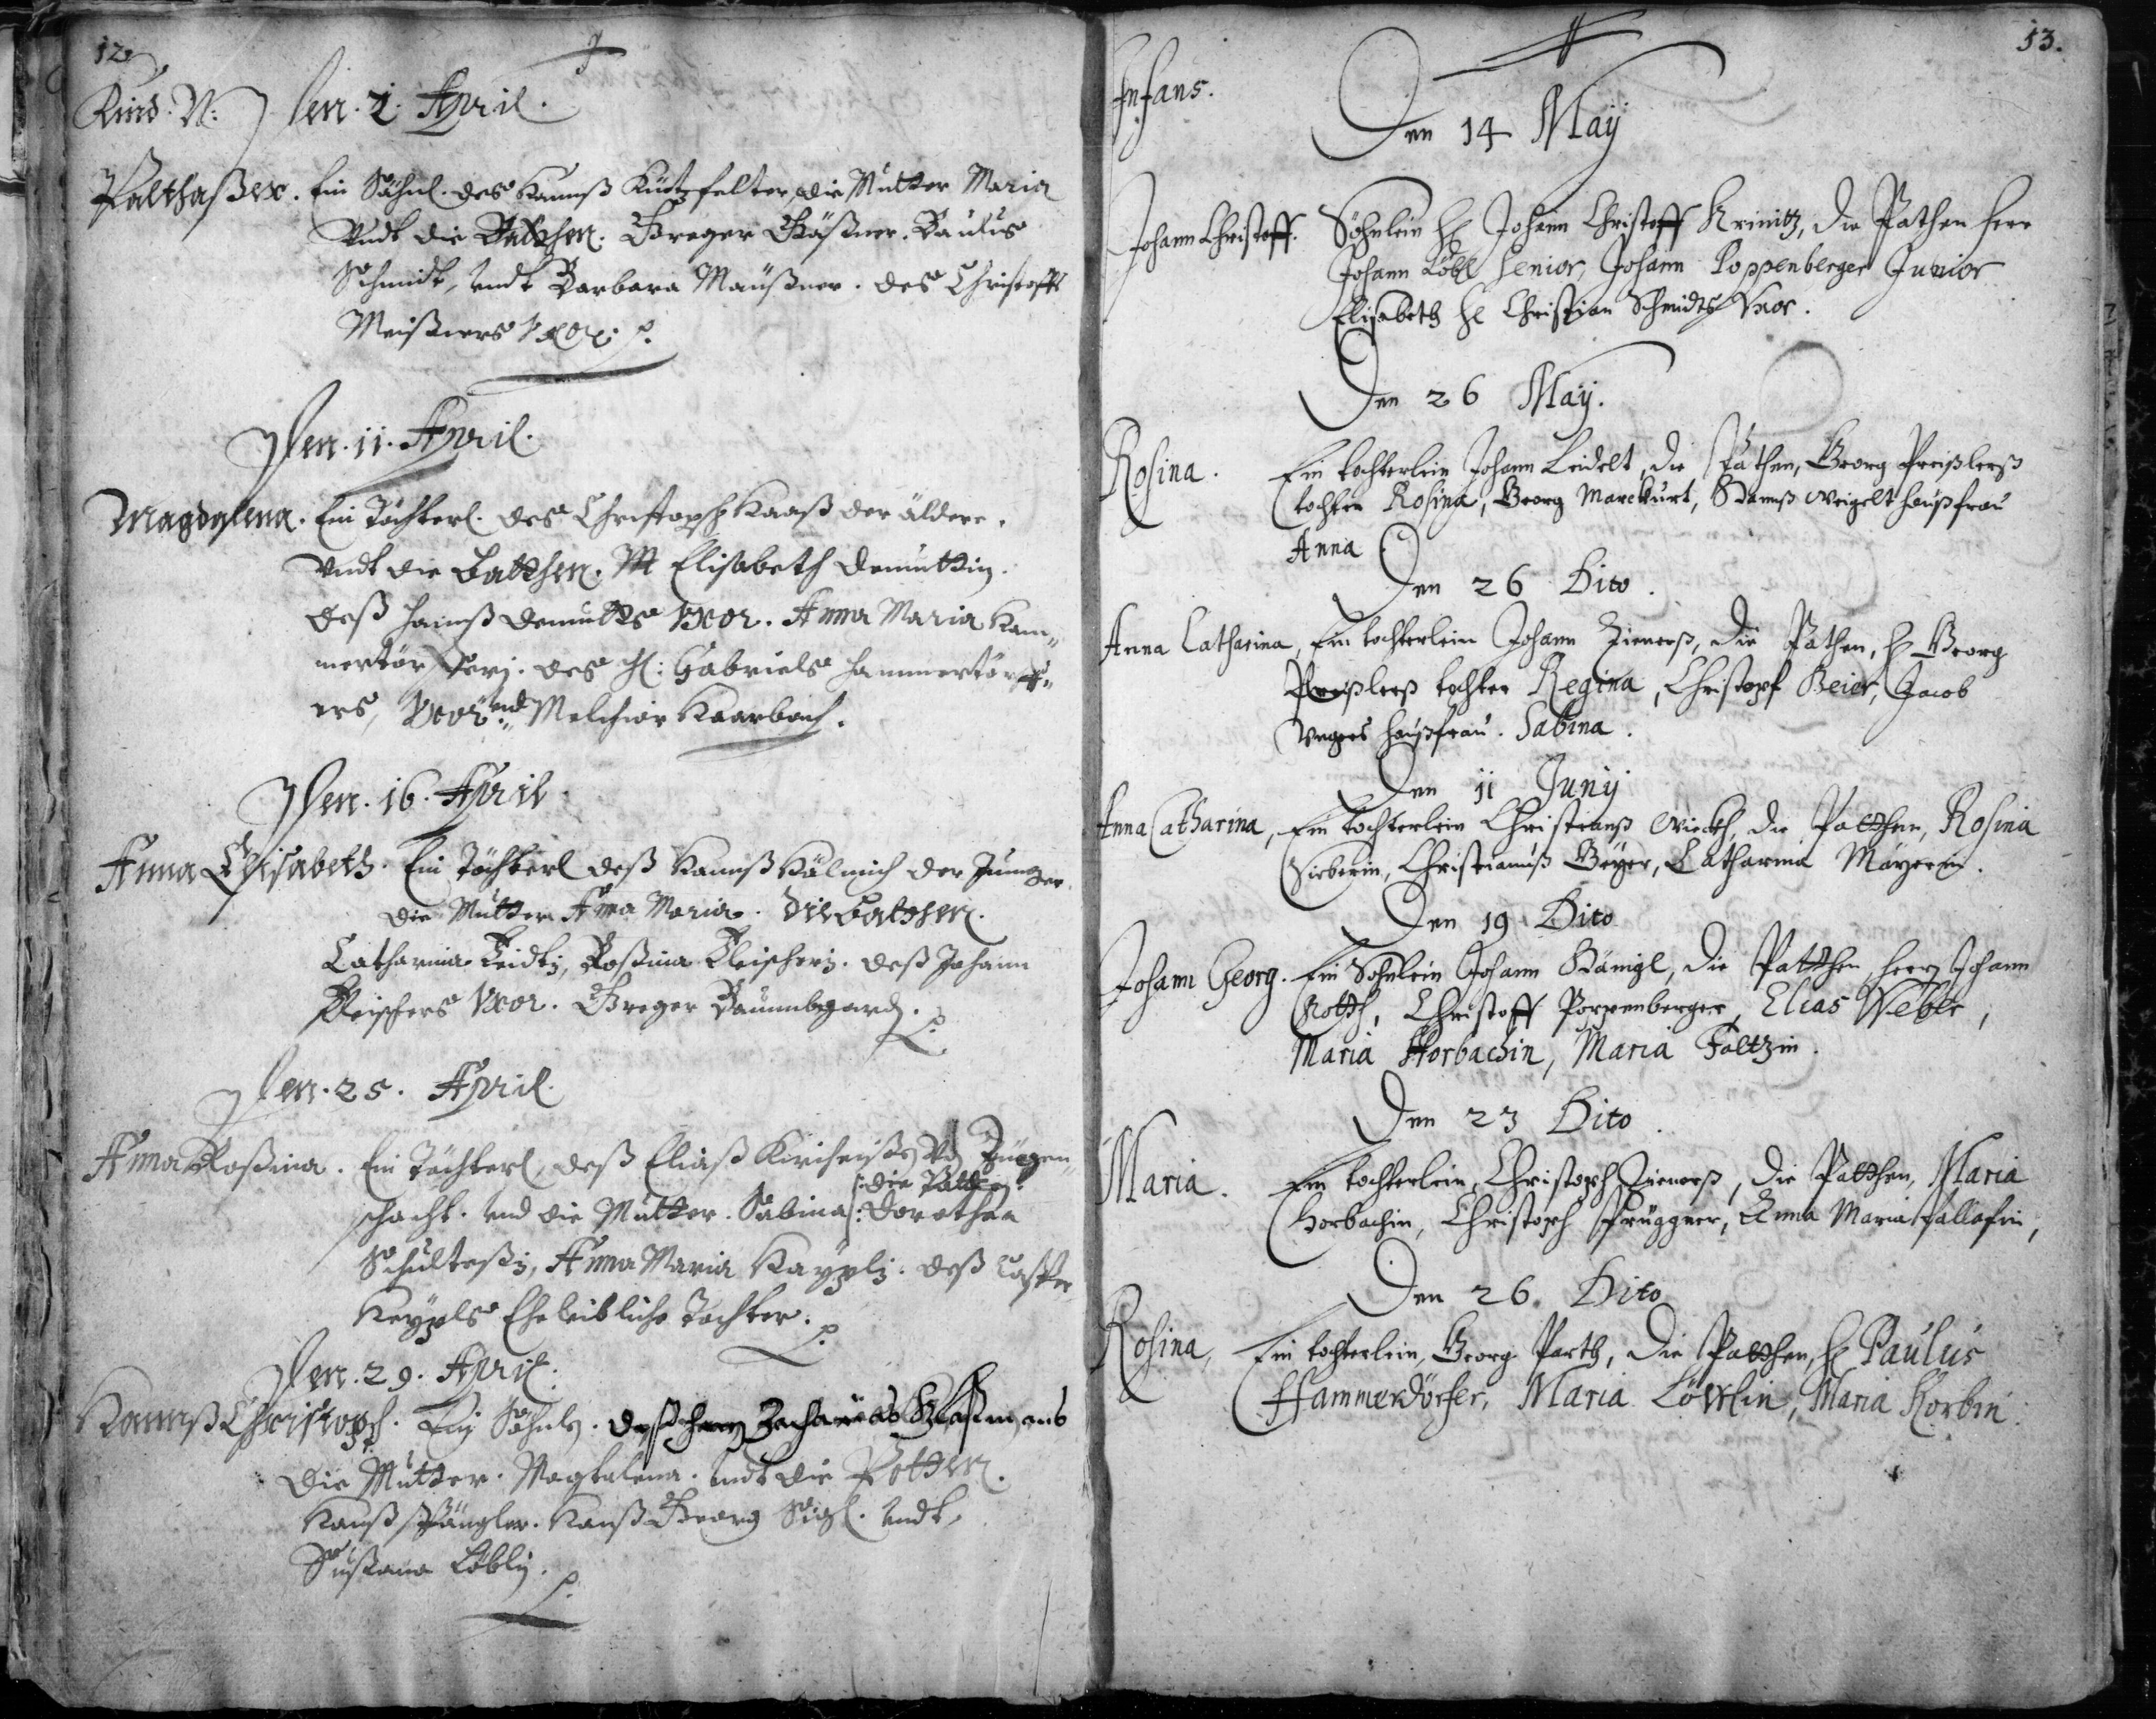 12
Kind. N: Den. 2. April.
Balthaßer. Ein Söhnl. des Hannß Küttfelter, die Mutter Maria
Undt die Patthen. Greger Gäßner. Paulus
Schmidt, undt Barbara Maußner. des Christoffs
Meißners Uxor.
Den. 11. April.
Magdalena. Ein Töchterl. des Christoph Haaß der äldere.
Undt die Batthen. M Elisabeth
deß Hannß Uxor. Anna Maria Ham„
mertör des H: Gabriels Hammertörff„
ers, Uxor und Melchior Haarbach.
Den. 16. April
Anna Elisabeth. Ein Töchterl deß Hannß der Junger
die Mutter Anna Maria. die Batthen.
Catharina Roßina Fleischerin. deß Johann
Fleischers Uxor. Greger
Den. 25. April.
Anna Roßina. Ein Töchterl, deß Eliaß
schacht. und die Mutter. Sabina: Dorothea
:die Patthen:
Anna Maria deß Casper
Eheleibliche Tochter.
Den. 29. April.
Hannß Christoph. Ein Söhnlein. deß Herrn Zacharias
die Mutter. Magdalena. undt die Petter.
Hannß Spängler. Hannß Georg undt
Sußana Löblin.
13.
Infans.
Den 14 Maij
Johann Christoff. Söhnlein H Johann Christoff Krinitz, die Pathen Herr
Johann Löbl Senior, Johann Poppenberger Junior
Elisabeth H Christian Schmidts Uxor.
Den 26 Maij.
Rosina. Ein tochterlein Johann Leidelt, die Pathen, Georg Preißlerß
tochter Rosina, Georg Marckurt, Hannß Weigelt haußfrau
Anna
Den 26 Dito.
Anna Catharina, Ein tochterlein Johann Zienerß, die Pathen, H Georg
Preißlerß tochter Regina, Christoph Beier, Jacob
Haußfrau. Sabina.
Den 11 Junij
Anna Catharina, Ein tochterlein Christianß die Patthen, Rosina
Sieberin, Christianuß Geÿer, Catharina Mayerin.
Den 19 Dito
Johann Georg. Ein Söhnlein Johann die Patthen, Herr Johann
Christoff Poppenberger, Elias Weber,
Maria Horbachin, Maria Faltzin.
Den 23 Dito
Maria. Ein tochterlein, Christoph Zienerß, die Patthen, Maria
Horbachin, Christoph Anna Maria
Den 26 Dito
Rosina, Ein tochterlein, Georg Parth, die Patthen, H Paulus
Hammerdörfer, Maria Maria Korbin.